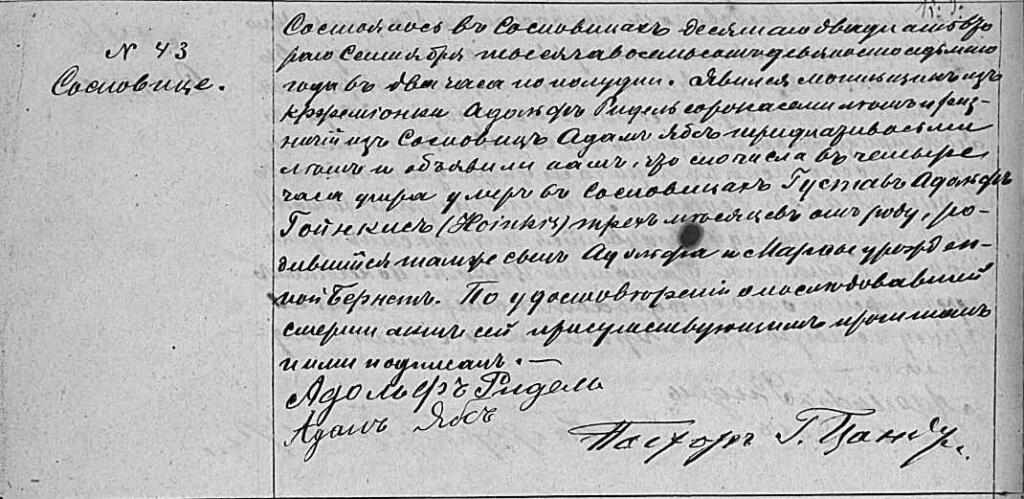 N 43
Сосновице.
Состоялось въ Сосновицахъ десятаго двадцать вто-
раго Сентября тысяча восемьсотъ девяносто седьмаго
года въ два часа по полудни. Явился могильщикъ изъ
Адольфъ Ридель сорока семи лѣтъ и
изъ Сосновицъ Адамъ Ябсъ тридцати восьми
лѣтъ и объявили намъ, что сего числа въ четыре
часа утра умеръ въ Сосновицахъ Густавъ Адольфъ
Гойнкисъ (Hoinkis) трехъ мѣсяцевъ отъ роду, ро-
дившійся тамъ же сынъ Адольфа и Марты урожден-
ной Бернетъ. По удостовѣреніи о послѣдовавшей
смерти актъ сей присутствующимъ прочитанъ
и ими подписанъ. —
Адольфъ Ридель
Адамъ Ябсъ
Пасторъ Г. Цандеръ.